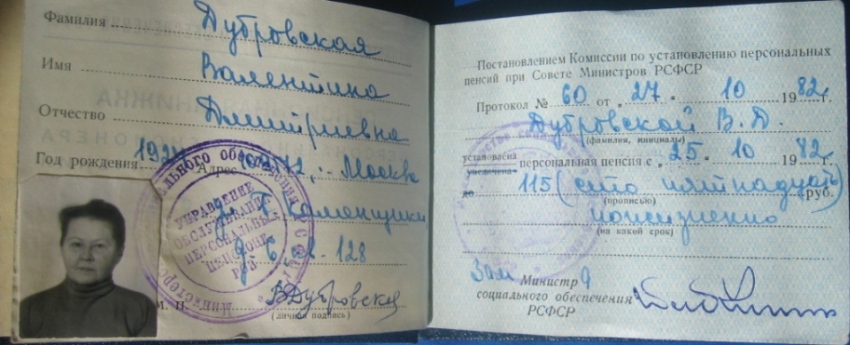 Фамилия Дубровская
Имя Валентина
Отчество Дмитриевна
Год рождения 192 Адрес , Москва
Каменщики
д. 6 кв. 128
ВДубровская
М. П. (личная подпись)
УПРАВЛЕНИЕ
ОБСЛУЖИВАНИЯ
ПЕРСОНАЛЬНЫХ
ПЕНСИОНЕ
РОВ
Постановлением Комиссии по установлению персональных
пенсий при Совете Министров РСФСР
Протокол № 60 от „27“ 10 1982г.
Дубровской В. Д.
(фамилия, инициалы)
установлена
увеличена персональная пенсия с „25“ 10 1982г.
до 115 (сто пятнадцать) руб.
(прописью)
пожизненно
(на какой срок)
Зам Министра
социального обеспечения
РСФСР